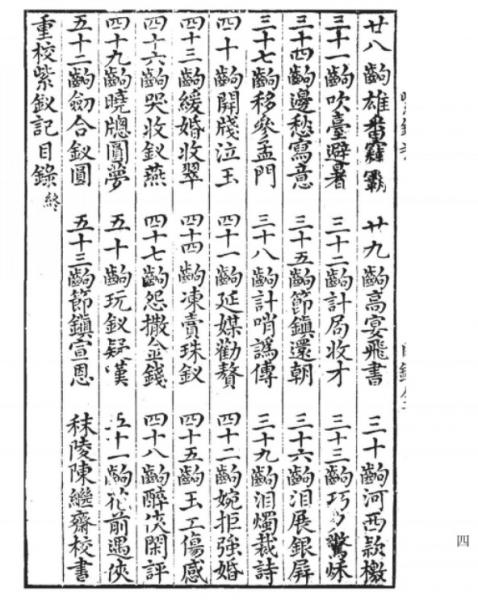 廿八齣雄番竊霸　廿九齣高宴飛書　三十齣河西款檄
三十一齣吹臺避暑　三十二齣計局收才　三十三齣巧夕驚秋
三十四齣邊愁寫意　三十五齣節鎮還朝　三十六齣泪展銀屏
三十七齣移參孟門　三十八齣計哨譌傳　三十九齣泪燭裁詩
四十齣開牋泣玉　四十一齣延媒勸贅　四十二齣婉拒強婚
四十三齣緩婚收翠　四十四齣凍賣珠釵　四十五齣玉工傷感
四十六齣哭收釵燕　四十七齣怨撒金錢　四十八齣醉俠閑評
四十九齣曉牕圓夢　五十齣玩釵疑嘆　五十一齣花前遇俠
五十二齣劒合釵圓　五十三齣節鎮宣恩　秣陵陳繼齋校書
重校紫釵記目錄終
四